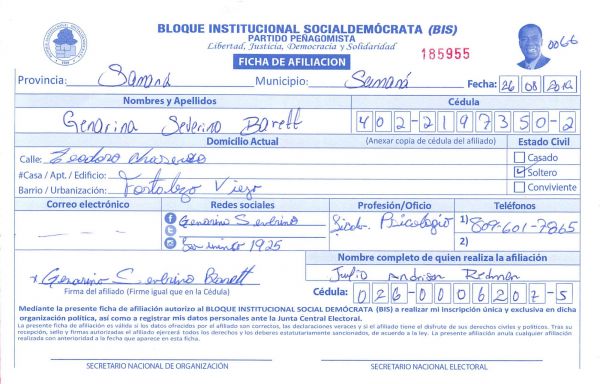 BLOQUE INSTITUCIONAL SOCIALDEMÓCRATA (BIS)
PARTIDO PEÑAGOMISTA
Libertad, Justicia, Democracia y Solidaridad
FICHA DE AFILIACION
185955
0066
Provincia: Samaná Municipio: Samaná Fecha: 26 08 2019
Nombres y Apellidos Cédula
Genarina Severino Barett 402-2197350-2
Domicilio Actual (Anexar copia de cédula del afiliado) Estado Civil
Calle: Teodoro Chasereaux
Casado
#Casa / Apt. / Edificio: Soltero
Barrio / Urbanización: Fortaleza Vieja Conviviente
Correo electrónico Redes sociales Profesión/Oficio Teléfonos
Genarina Severino Psicología 1) 809-601-7865
1925 2)
Nombre completo de quien realiza la afiliación
Genarino Severino Barett Julio Andrison Redman
Firma del afiliado (Firme igual que en la Cédula) Cédula: 026-0006207-5
Mediante la presente ficha de afiliación autorizo al BLOQUE INSTITUCIONAL SOCIAL DEMÓCRATA (BIS) a realizar mi inscripción única y exclusiva en dicha
organización política, así como a registrar mis datos personales ante la Junta Central Electoral.
La presente ficha de afiliación es válida si los datos ofrecidos por el afiliado son correctos, las declaraciones veraces y si el afiliado tiene el disfrute de sus derechos civiles y políticos. Tras su
recepción, sello y firmas autorizadas el afiliado ejercerá todos los derechos y los deberes estatutariamente sancionados, de acuerdo a la ley. La presente afiliación anula cualquier afiliación
realizada con anterioridad a la fecha que aparece en esta ficha.
SECRETARIO NACIONAL DE ORGANIZACIÓN SECRETARIO NACIONAL ELECTORAL